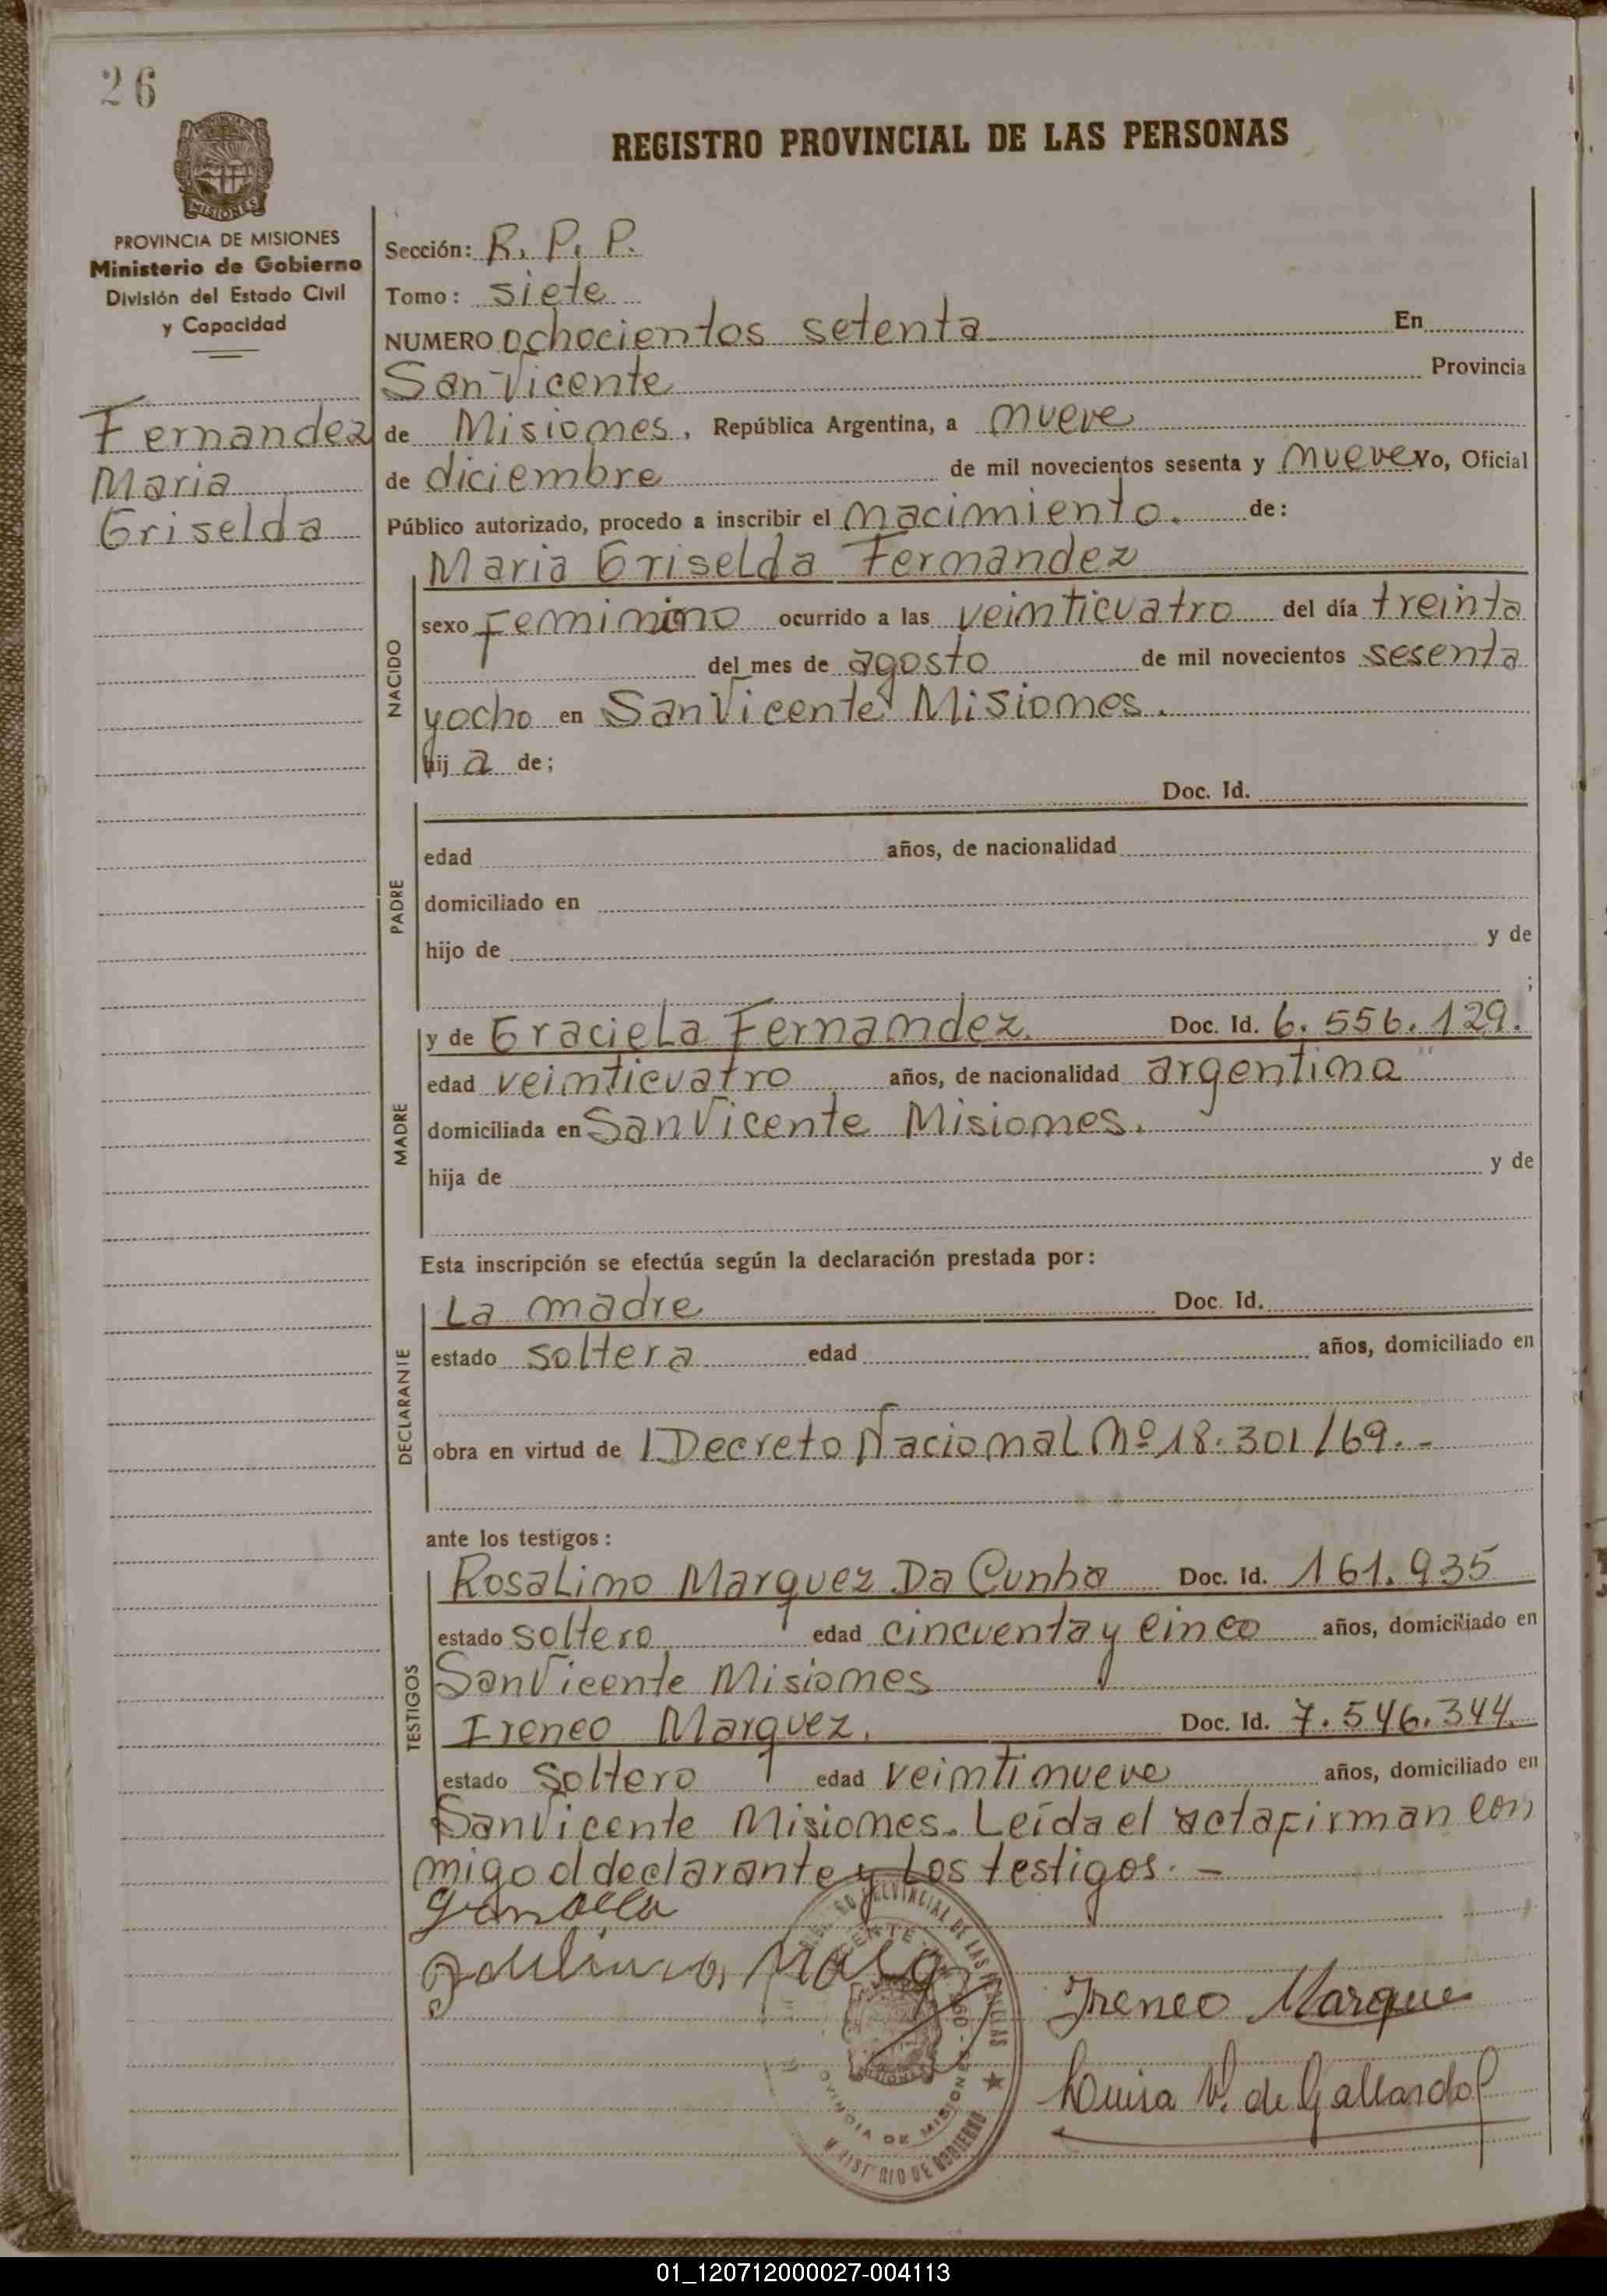 26
REGISTRO PROVINCIAL DE LAS PERSONAS
MISIONES
PROVINCIA DE MISIONES
Ministerio de Gobierno
División del Estado Civil
y Capacidad
Fernandez
Maria
Griselda
Sección: R. P. P.
Tomo: siete
NUMERO ochocientos setenta En
San Vicente Provincia
de Misiones, República Argentina, a nueve
de diciembre de mil novecientos sesenta y nueve Yo, Oficial
Público autorizado, procedo a inscribir el nacimiento. de:
NACIDO
Maria Griselda Fernandez
sexo femenino ocurrido a las veinticuatro del día treinta
del mes de agosto de mil novecientos sesenta
y ocho en San Vicente Misiones.
hij a de;
PADRE
Doc. Id.
edad años, de nacionalidad
domiciliado en
hijo de y de
;
MADRE
y de Graciela Fernandez. Doc. Id. 6.556.129.
edad veinticuatro años, de nacionalidad argentina
domiciliada en San Vicente Misiones.
hija de y de
Esta inscripción se efectúa según la declaración prestada por:
DECLARANTE
La madre Doc. Id.
estado soltera edad años, domiciliado en
obra en virtud de Decreto Nacional Nº 18.301/69.-
ante los testigos:
TESTIGOS
Rosalino Marquez Da Cunha Doc. Id. 161.935
estado soltero edad cincuenta y cinco años, domiciliado en
San Vicente Misiones
Ireneo Marquez. Doc. Id. 7.546.344.
estado soltero edad veintinueve años, domiciliado en
San Vicente Misiones. Leída el acta firman con
migo el declarante y los testigos. -
Ireneo Marque
Luisa V. de Gallardo
PROVINCIAL DE LAS
PROVINCIA DE MISIONES
MINISTERIO DE GOBIERNO
01_120712000027-004113